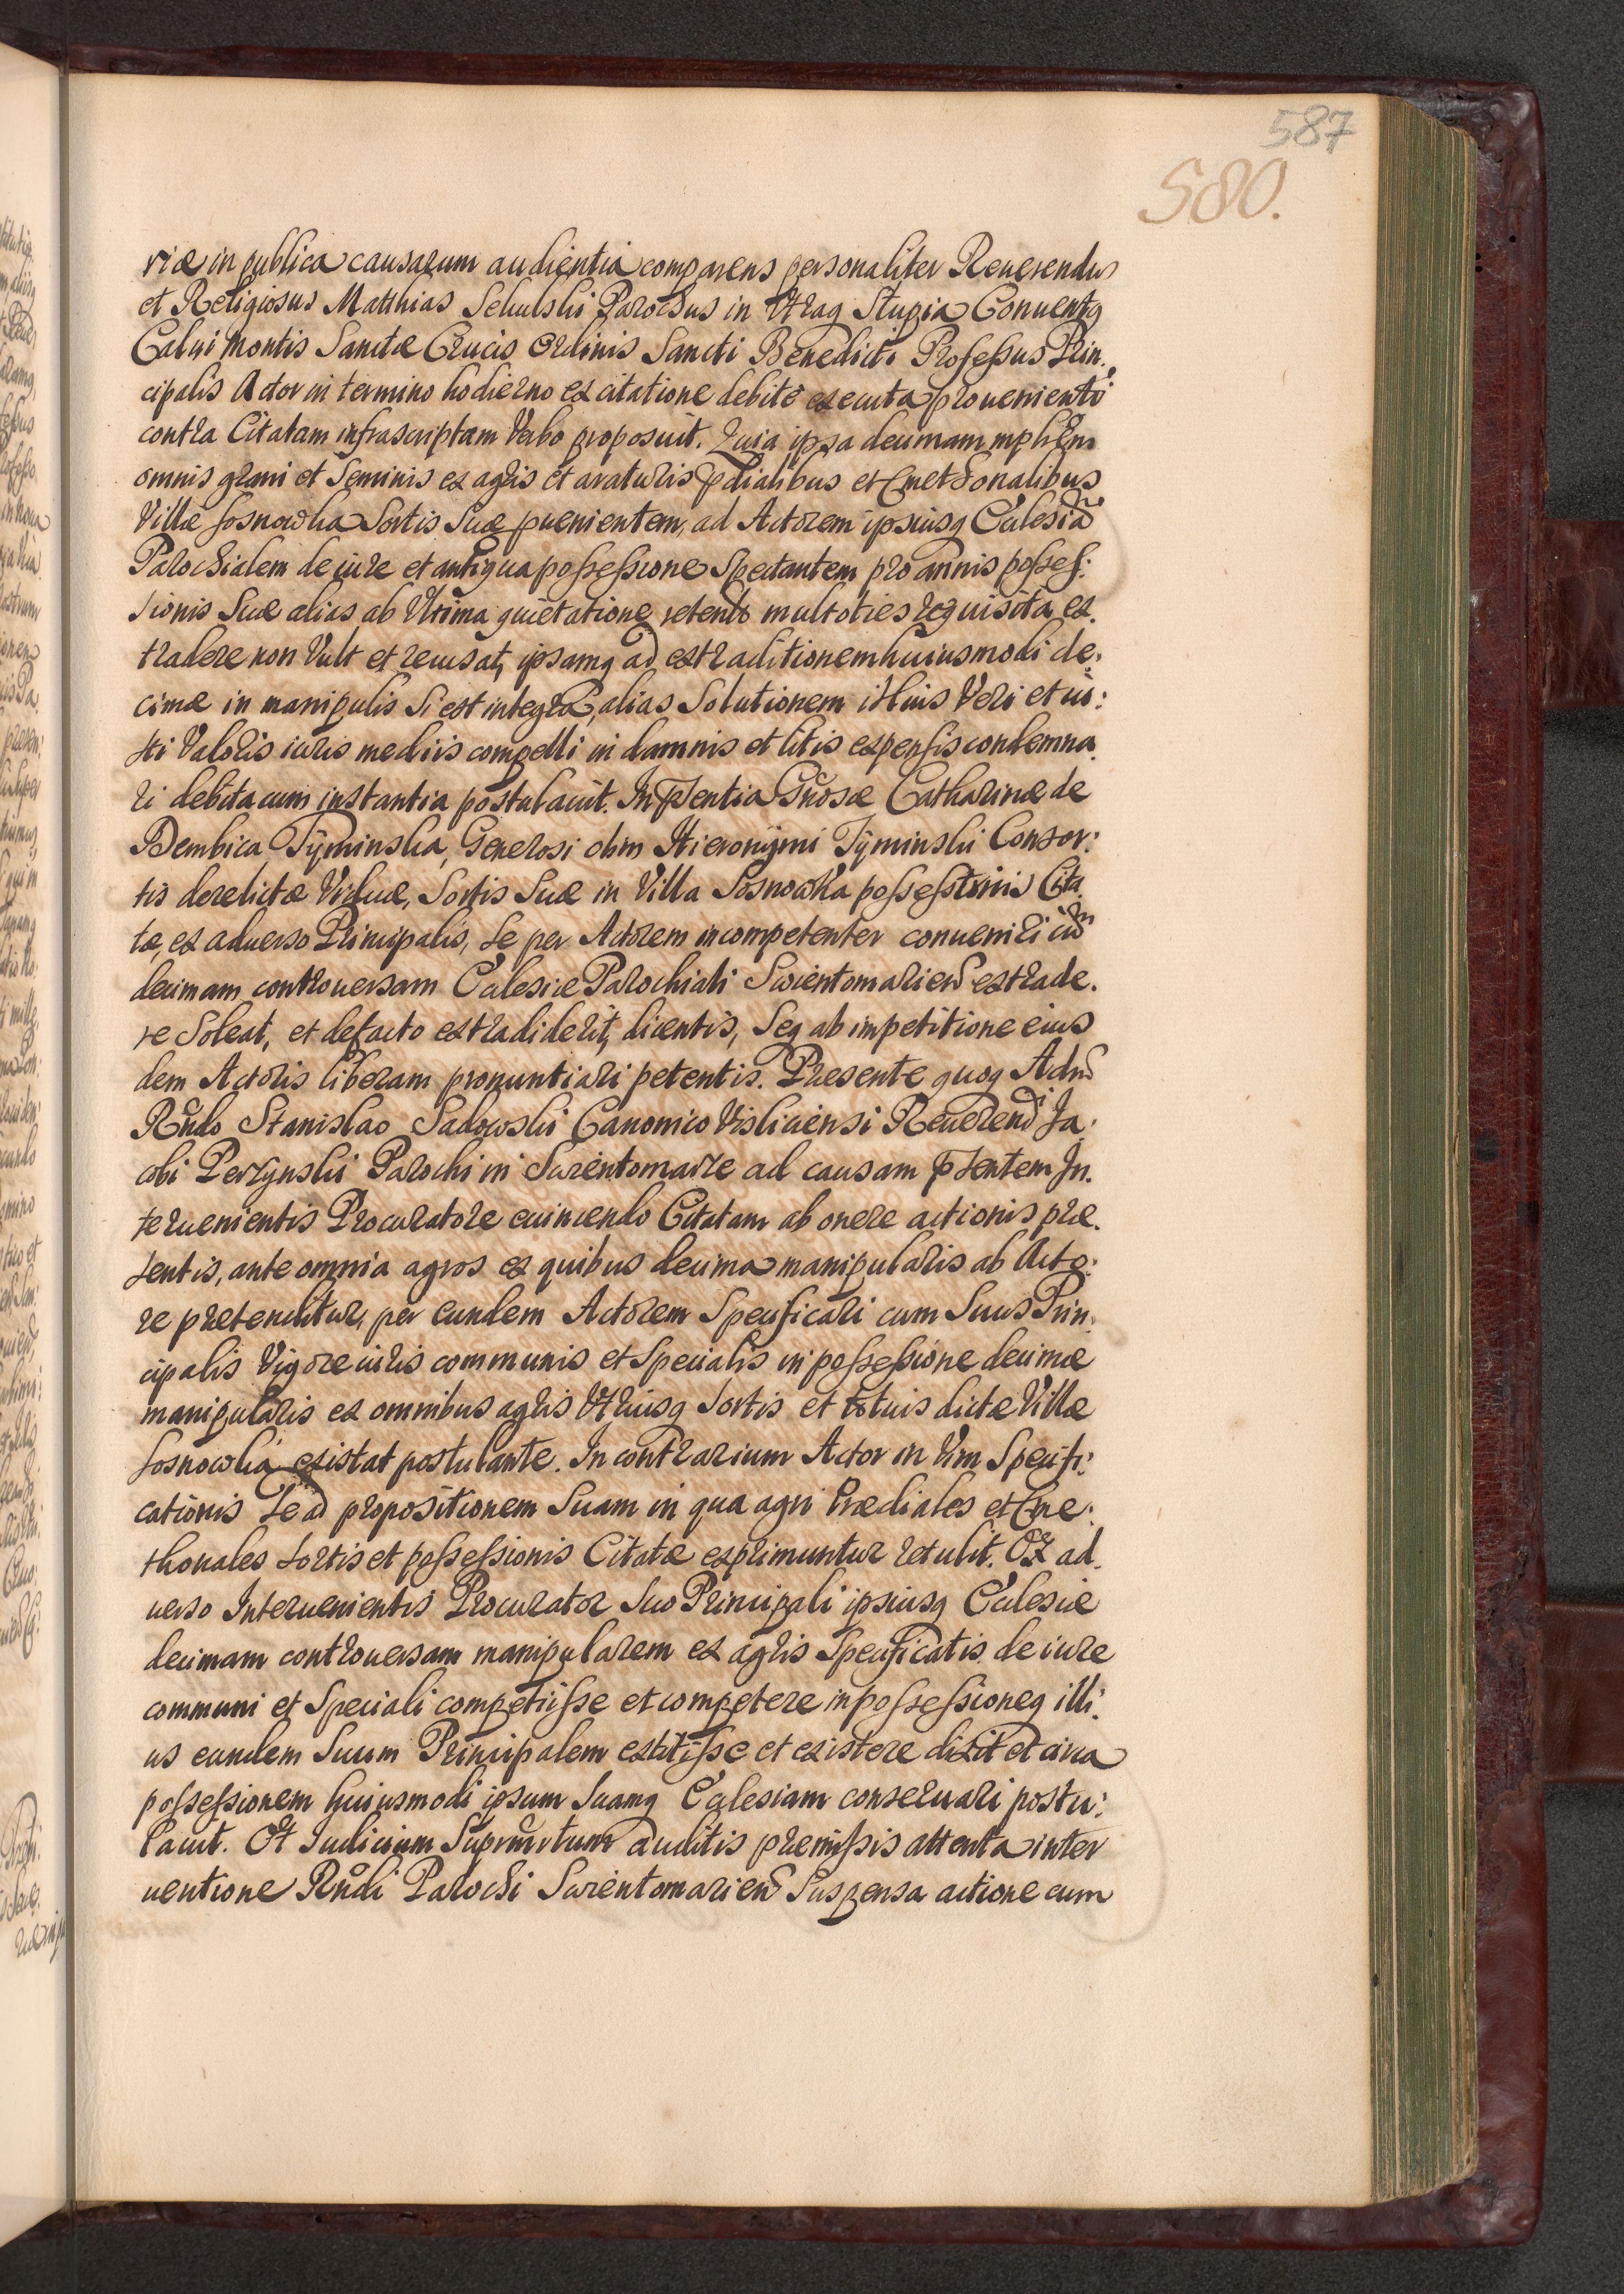 587
580.
riæ in publica causarum audientia comparens personaliter Reuerendus
et Religiosus Matthias Sekulski Parochus in Vtraq Stupia Conuentq
Calui Montis Sanctæ Crucis Ordinis Sancti Benedicti Professus Prin.
cipalis Actor in termino hodierno ex citatione debite executa proueniente
contra Citatam infrascriptam Verbo proposuit. Quia ipsa decimam mplrem
omnis grani et Seminis ex agris et araturis pdialibus et Cmethonalibus
Villæ Sosnowka Sortis Suæ puenientem, ad Actorem ipsiusq Ecclesiā
Parochialem de iure et antiqua possessione Spectantem pro annis posses:
sionis Suæ alias ab Vltima quietatione retento multoties requisita ex.
tradere non Vult et recusat, ipsamq ad extraditionem huiusmodi de:
cimæ in manipulis Si est integra, alias Solutionem illius Veri et iu:
sti Valoris iuris mediis compelli in damnis et litis expensis condemna.
ri debita cum instantia postulauit. In pnsentia Gnosæ Catharinæ de
Dembica Tyminska, Generosi olim Hieronymi Tyminski Consor:
tis derelictæ Viduæ, Sortis Suæ in Villa Sosnowka possestricis Cita
tæ, ex aduerso Principalis, Se per Actorem incompetenter conueniri cū
decimam controuersam Ecclesiæ Parochiali Swientomarien extrade.
re Soleat, et de facto extradiderit, dicentis, Seq ab impetitione eius
dem Actoris liberam pronuntiari petentis. Presente quoq Adm
Rndo Stanislao Sadowski Canonico Visliciensi Reuerendi Ja:
cobi Perzynski Parochi in Swientomarze ad causam pntentem In.
teruenientis Procuratore euincendo Citatam ab onere actionis præ.
sentis, ante omnia agros ex quibus decima manipularis ab Acto:
re pretenditur, per eundem Actorem Specificari cum Suus Prin.
cipalis Vigore iuris communis et Specialis in possessione decimæ
manipularis ex omnibus agris Vtriusq Sortis et totius dictæ Villæ
Sosnowka existat postulante. In contrarium Actor in Vim Specifi:
cationis Se ad propositionem Suam in qua agri Prædiales et Cme:
thonales Sortis et possessionis Citatæ exprimuntur retulit. Ex ad.
uerso Interuenientis Procurator Suo Principali ipsiusq Ecclesiæ
decimam controuersam manipularem ex agris Specificatis de iure
communi et Speciali competiisse et competere in possessioneq illi:
us eundem Suum Principalem extitisse et existere dixit et circa
possessionem huiusmodi ipsum Suamq Ecclesiam conseruari postu:
lauit. Et Iudicium auditis premissis attenta inter
uentione Rndi Parochi Swientomarien Suspensa actione cum